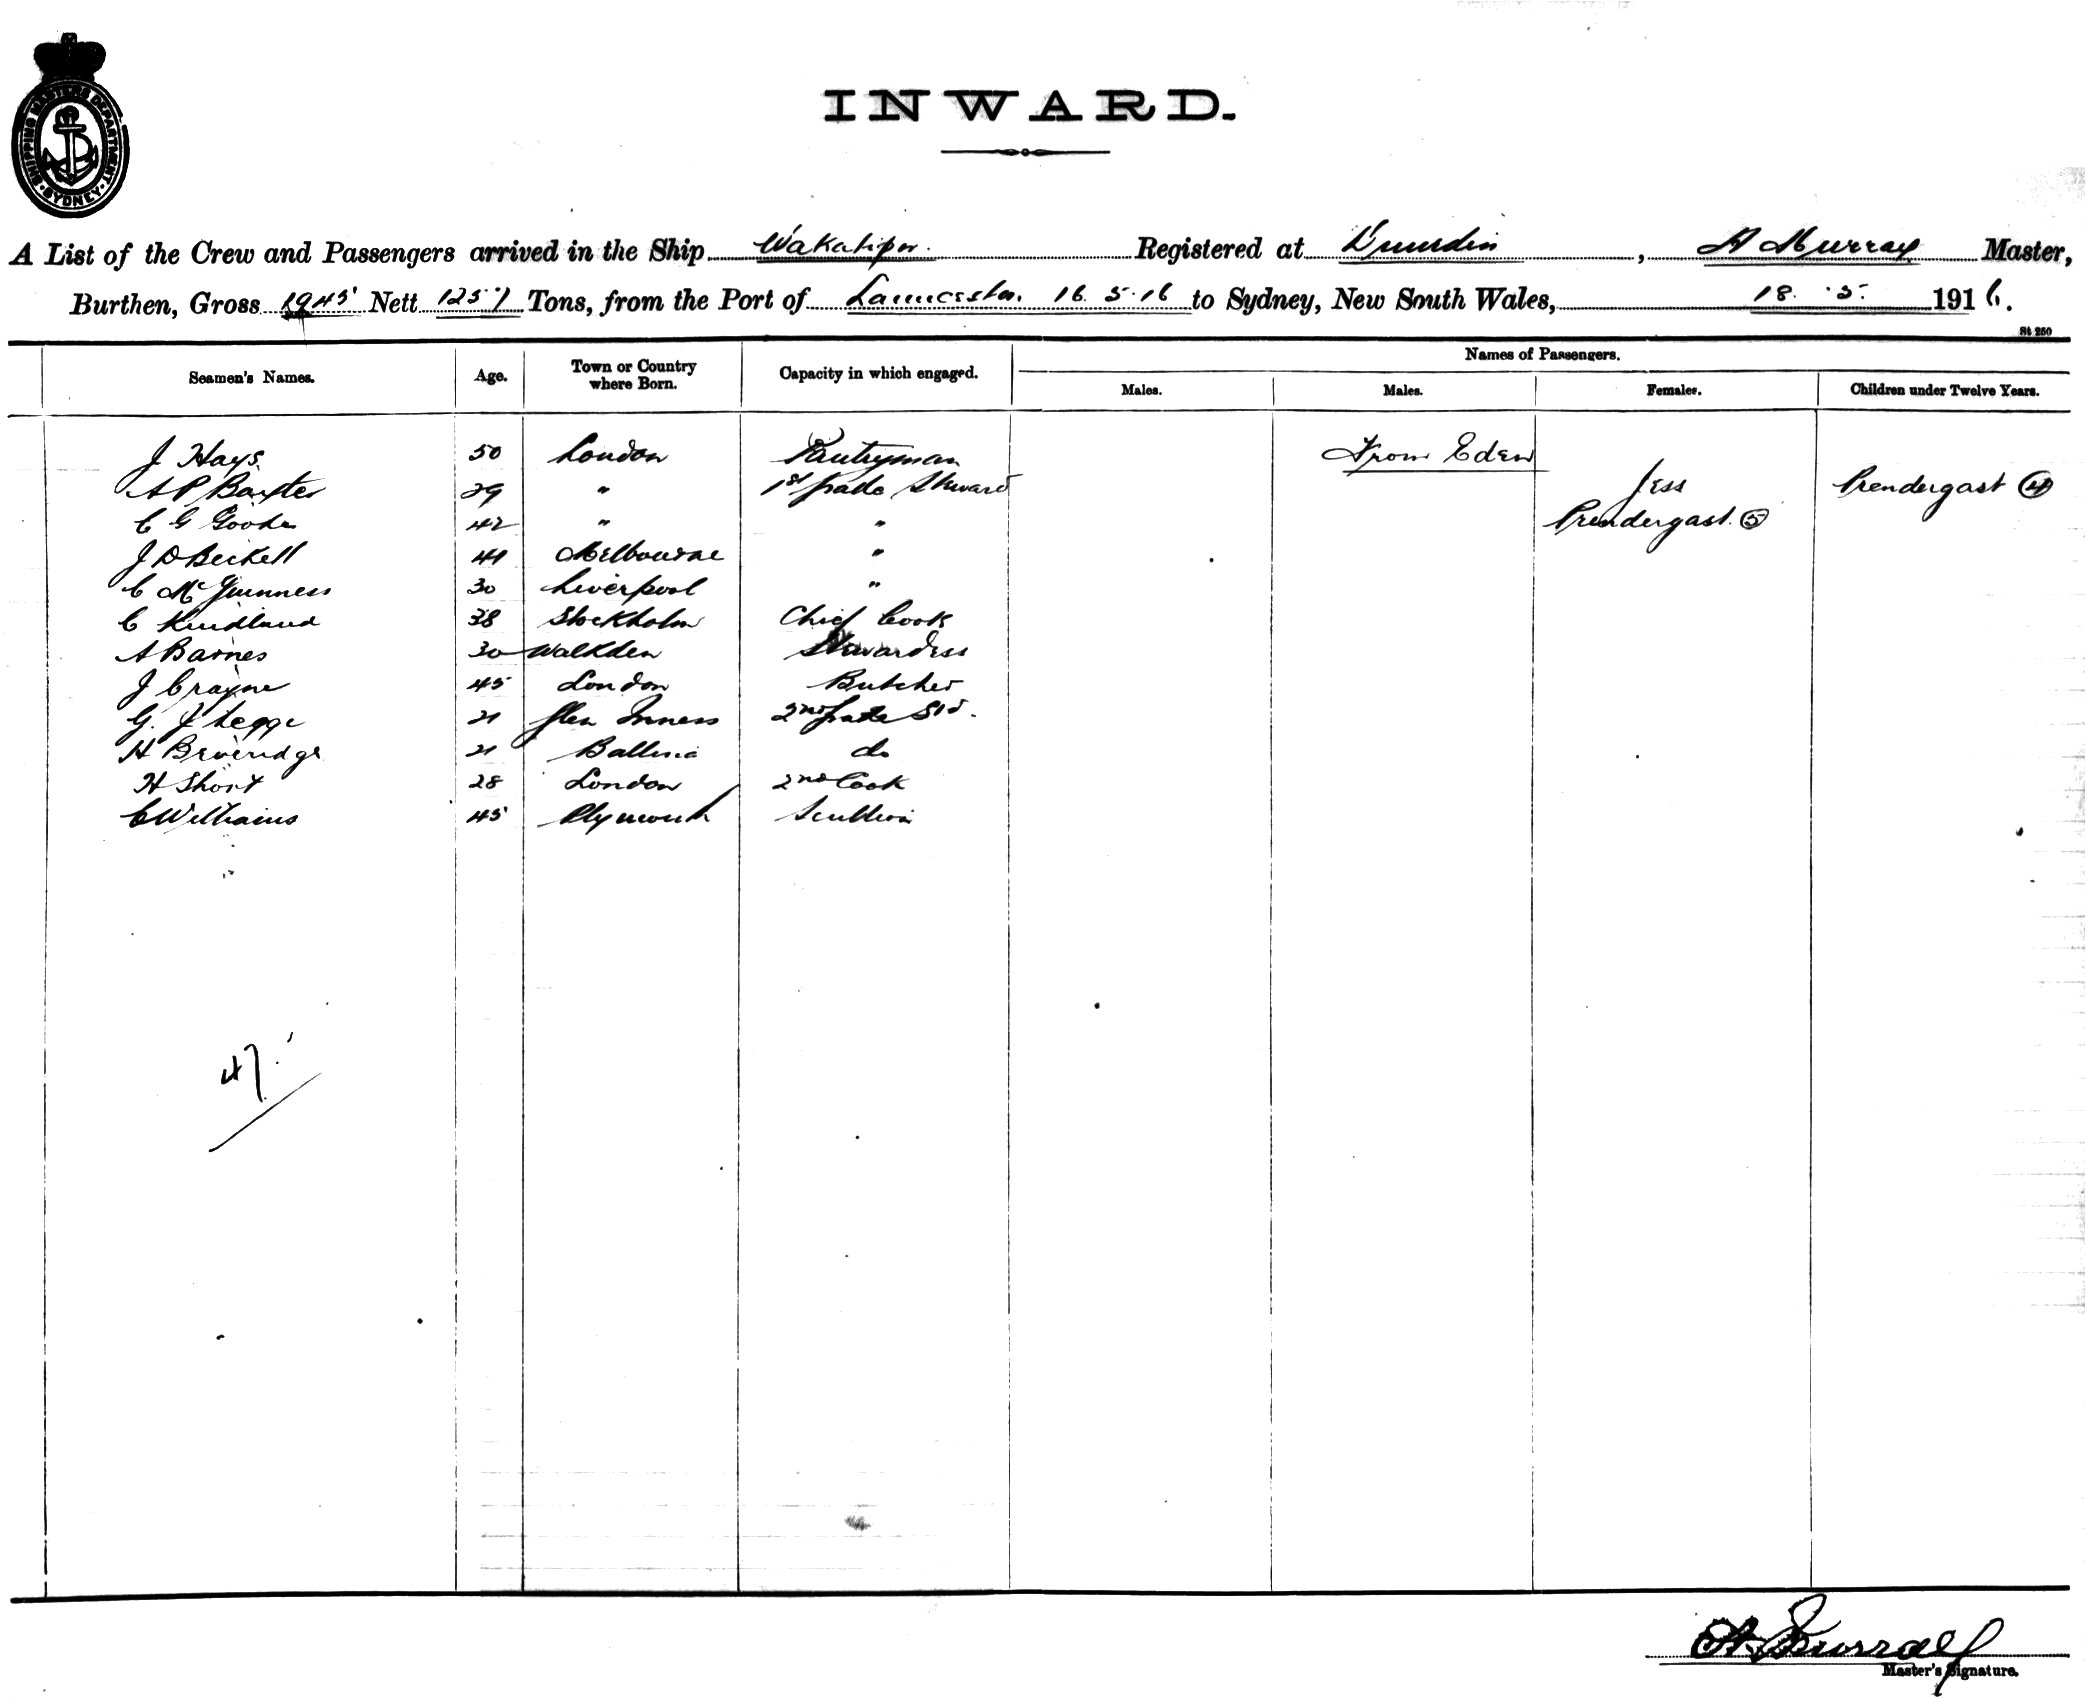 SHIPPING MASTERS DEPARTMENT
SYDNEY
INWARD.
A List of the Crew and Passengers arrived in the Ship Wakatipu. Registered at Dunedin, A Murray Master,
Burthen, Gross 1945 Nett 1257 Tons, from the Port of Launceston. 16.5.16 to Sydney, New South Wales, 18.5.1916.
St 250
Names of Passengers.
Seamen's Names. Age. Town or Country where Born. Capacity in which engaged. Males. Males. Females. Children under Twelve Years.
J Hays 50 London Pantryman From Eden
A P Baxter 29 " 1st grade Steward Jess Prendergast 4
C G Goode 42 " " Prendergast. 5
J D Beckett 41 Melbourne "
C McGuinness 30 Liverpool "
C Kindlund 38 Stockholm Chief Cook
A Barnes 30 Walkden Stewardess
J Crayne 45 London Butcher
G. J Legge 21 Glen Inness 2nd grade Std.
H Beveridge 21 Ballina do
H Short 28 London 2nd Cook
C Williams 45 Plymouth Scullion
47
A Murray
Master's Signature.